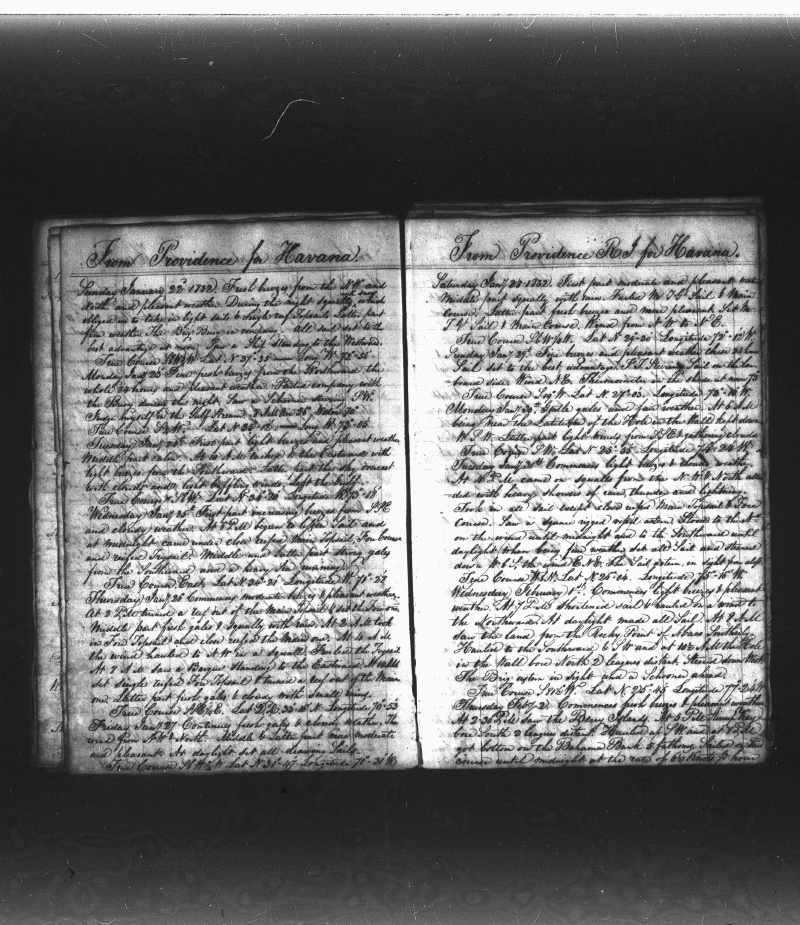 From Providence for Havana.
Sunday January 22d 1832. Fresh breezes from the NW and
North and pleasant weather. During the night squally, which
obliged us to take in light sail & Single reef Topsails Latter part
fine weather The Brig in company. All sail set to the
best advantage at noon. Saw a Ship standing to the Westward.
True Course Lat N 37-35 Long W 73-35
Monday Jany 23d Fine fresh breezes from the Northward the
whole 24 hours and pleasant weather. Parted company with
the Brig during the night. Saw a Schooner steering SW.
Judge myself in the Gulf Stream.
True Course Lat N 35-12 Long W 73-05
Tuesday Jany 24th First part light breezes and pleasant weather
Middle part calm. At 10 A.M. to the Eastward with
light breezes from the Northward. Latter part the sky overcast
with clouds and light baffling winds
True Course Lat N 34-20 Longitude W 73-13
Wednesday Jany 25th First part increasing breezes from
and cloudy weather. At 5 P.M. began to
at midnight came under close reefed Main Topsail, Fore Course
and reefed Trysail. Middle and Latter part strong gales
from the Southward and a heavy Sea running.
True Course East. Lat N 34-21 Longitude W 71-52
Thursday Jany 26 Commences moderate breezes & pleasant weather.
At 2 P.M. turned a reef out of the Main Topsail & set the Fore one
Middle part fresh gales & Squally with rain. At 2 A.M. took
in Fore Topsail and close reefed the Main one. At 4 A.M.
the wind hauled to NW in a Squall. Furled the Trysail
At 7 A.M. saw a Barque standing to the Eastward At 10 AM
set single reefed Fore Topsail & turned a reef out of the Main
one. Latter part fresh gales & cloudy with small
True Course Longitude 70-53
Friday Jany 27 Continues fresh gales & cloudy weather. The
wind from NW & North. Middle & Latter part more moderate
and pleasant. At daylight set all drawing Sails.
True Course Lat N 31-27 Longitude 71-31 W
From Providence R I for Havana.
Saturday Jany 28 1832. First part moderate and pleasant
Middle part squally with rain. Furled M. T.G. Sail & Main
Course. Latter part fresh breezes and more pleasant. Set M
T.G. Sail & Main Course. Wind from NW to NE.
True Course Lat N 29-20 Longitude 72-12 W
Sunday Jany 29. Fine breezes and pleasant weather these 24 hours
Sail set to the best advantage. Steering Sail on the lar-
-board side. Wind NE. Thermometer in the shade at noon 75
True Course Lat N 27-03 Longitude
Monday Jany 30. Gentle gales and fair weather. At 6 A.M.
being near the Latitude of the Hole in the Wall kept down
W S W. Latter part light winds from gathering clouds
True Course Lat N 25-55 Longitude 74-24 W
Tuesday Jany 31st Commences light breezes & cloudy weather
At P.M. came on squalls from the atten-
-ded with heavy showers of rain, thunder and lightning.
Took in all sail except close reefed Main Topsail & Fore
Course. Saw a square rigged vessel astern Stood to the
on the wind until midnight and to the Southward until
daylight when being fine weather set all Sail and steered
down W S, the wind E.N.E. The Sail astern in sight from aloft
True Course Lat N 26-04 Longitude 75-15 W
Wednesday February 1st. Commences light breezes & pleasant
weather. At 7 P.M. shortened sail & hauled on a wind to
the Northward. At daylight made all Sail. At 8 A.M.
saw the land from the Rocky Point of Abaco Southerly.
Hauled to the Southward & SW and at A.M. the Hole
in the Wall bore North 2 leagues distant. Steered down West.
The Brig astern in sight and a Schooner ahead
True Course Lat N 25-45 Longitude 77-24 W
Thursday Feby 2. Commences fresh breezes & pleasant weather
At 2-30 P.M. saw the Berry Islands. At 5 P.M. Stirrup Key
bore South 2 leagues distant. Hauled up SW and at 8 P.M.
got bottom on the Bahama Bank 5 fathoms.
course until midnight at the rate of 6 Knots per hour